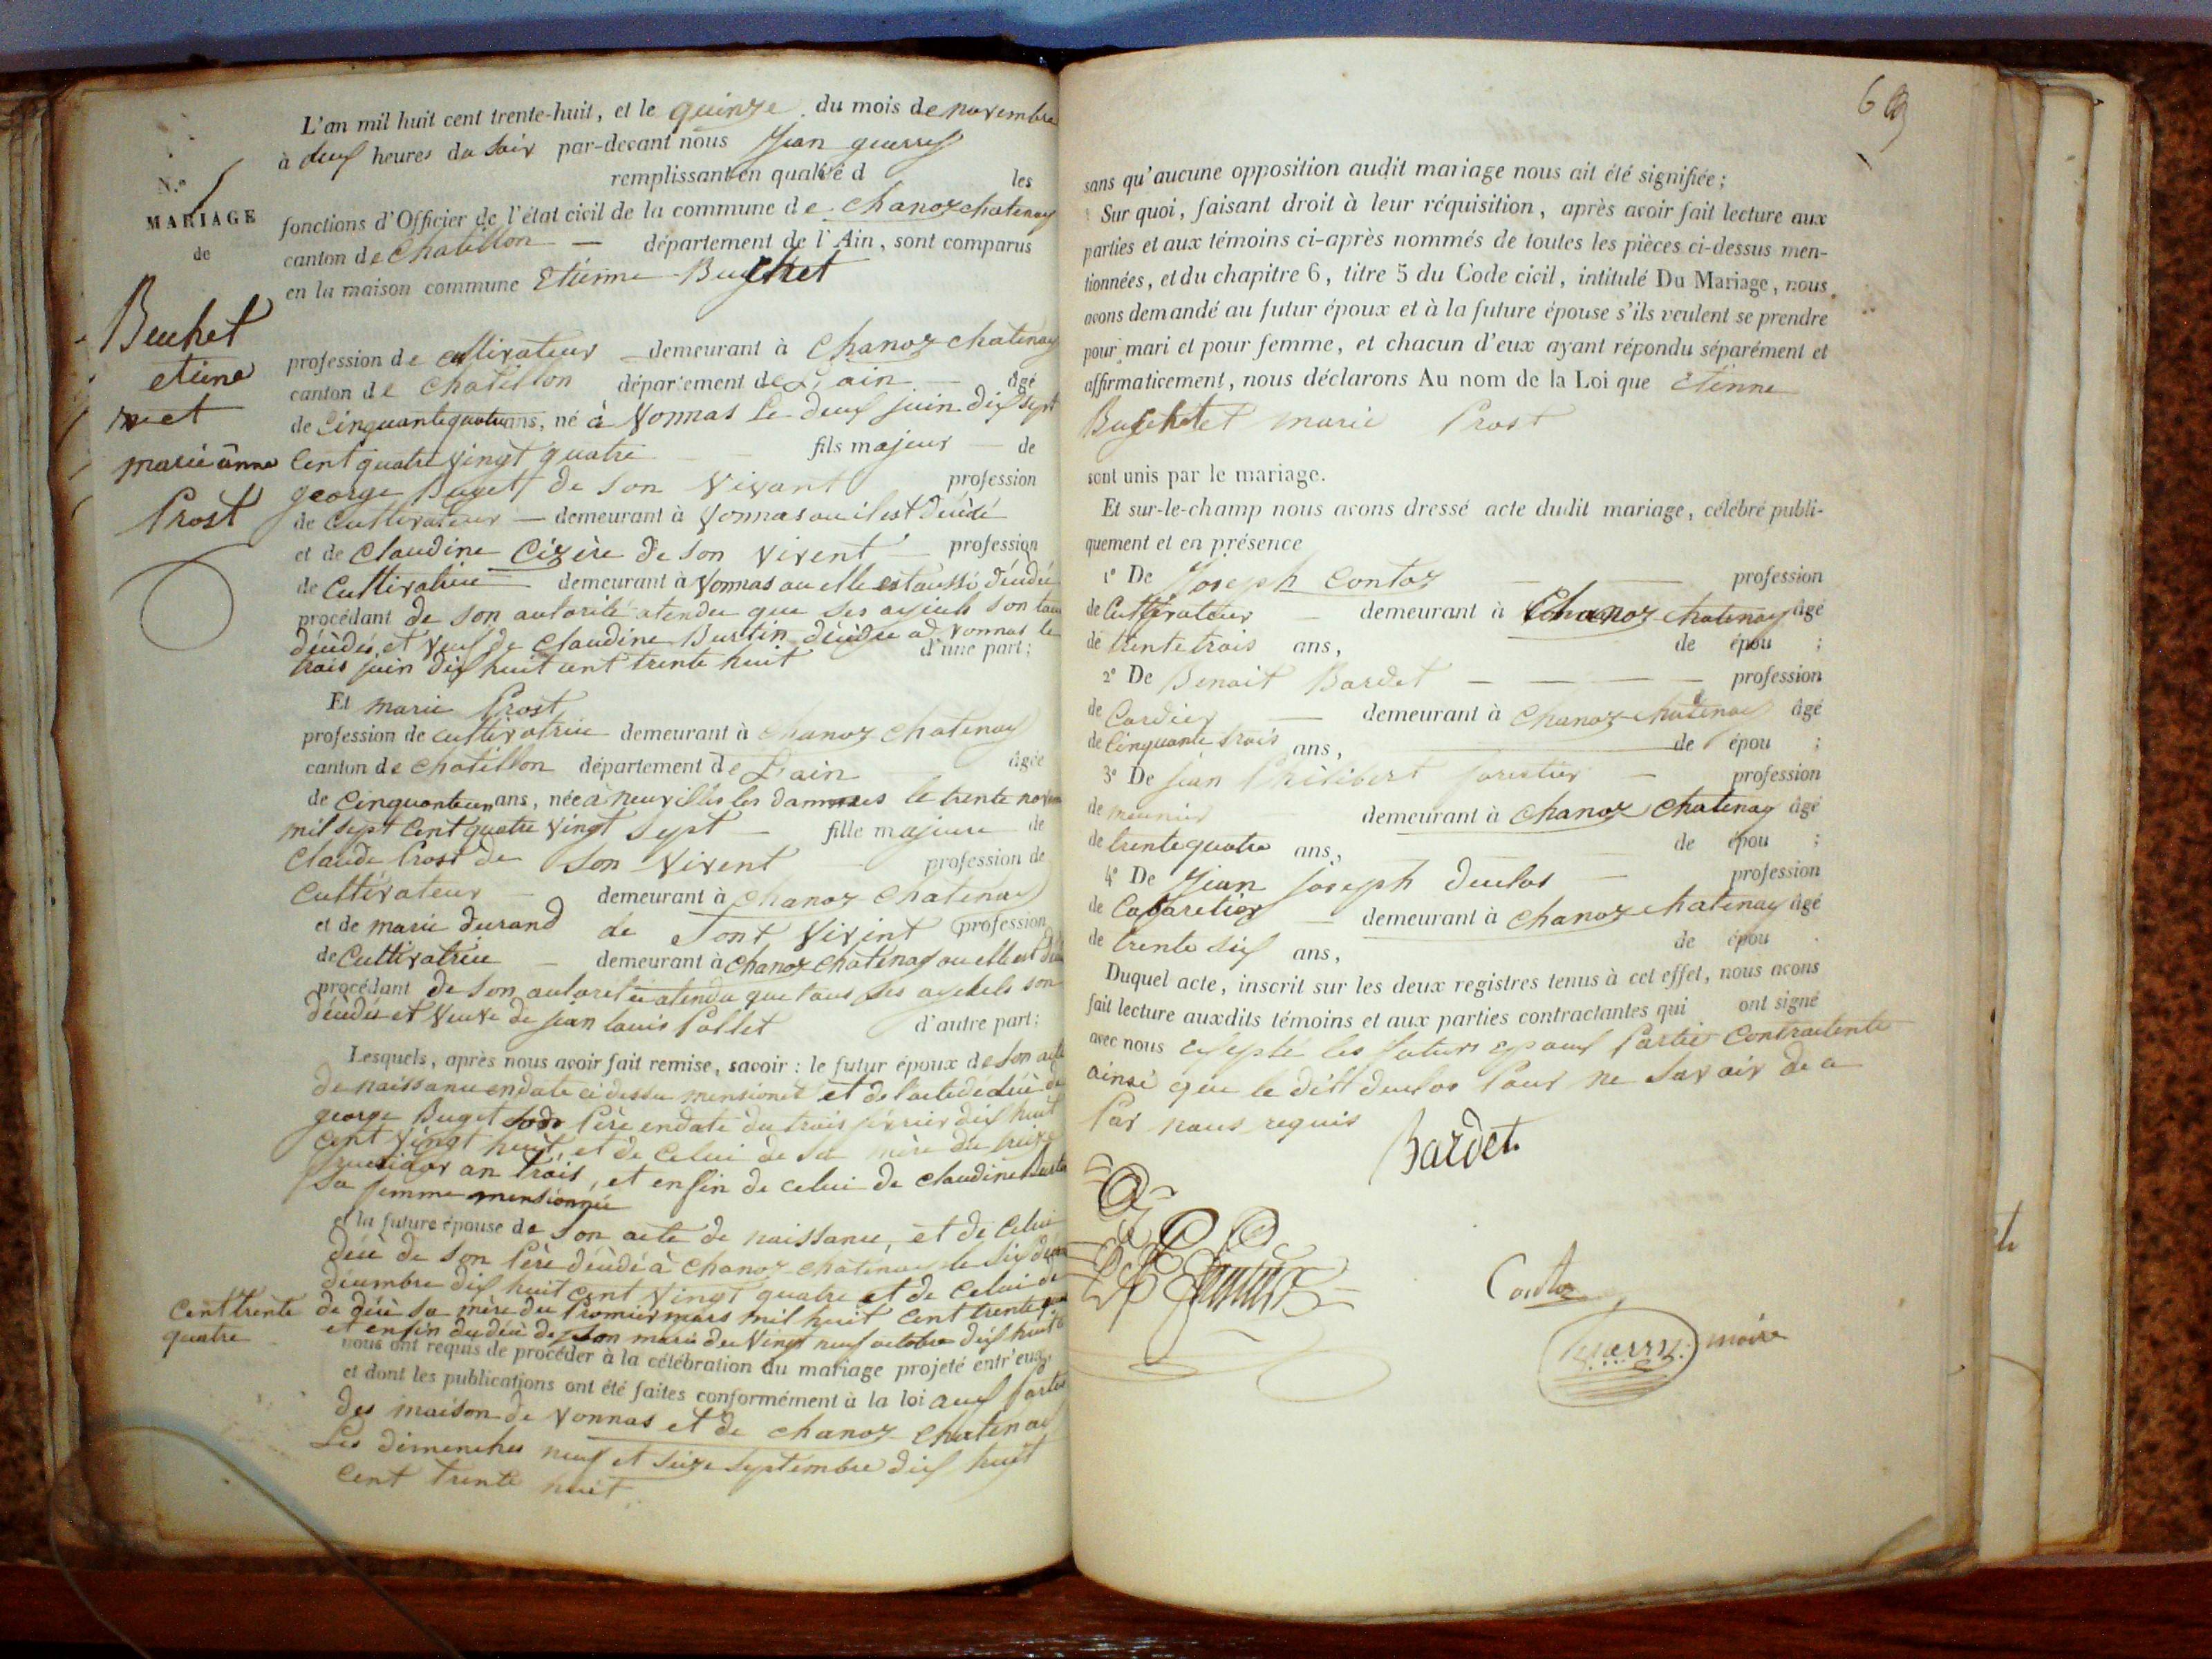 L'an mil huit cent trente-huit, et le quinze du mois de novembre
à deux heures du soir par-devant nous Jean guerry
remplissant en qualité d les
fonctions d'Officier de l'état civil de la commune de Chanoz chatenay
canton de Chatillon — département de l'Ain, sont comparus
en la maison commune Etienne Buchet
N.º
MARIAGE
de
Beuchet
etiene
et
marie anne
Prost
profession de cultivateur demeurant à Chanoz chatenay
canton de chatillon département de L'ain âgé
de Cinquante quatre ans, né à Vonnas Le deux juin dix sept
Cent quatre vingt quatre fils majeur de
george Buget de son Vivant profession
de Cultivateur — demeurant à Vonnas ou il est décédé
et de Claudine Cizère de son vivent profession
de Cultivatrice demeurant à Vonnas ou elle est aussi décédée
procédant de son autorité atendu que ses ayieuls son tous
décèdés, et veuf de Claudine Burtin décèdée a Vonnas le
trois juin dix huit ant trente huit d'une part;
Et marie Prost
profession de cultivatrice demeurant à Chanoz chatenay
canton de chatillon département de L'ain âgée
de Cinquante un ans, née à neuville les dammes le trente novem
mil sept Cent quatre vingt sept fille majeure de
Claude Prost de son Vivent profession de
Cultivateur demeurant à chanoz chatenay
et de marie durand de sont Vivint profession
de Cultivatrice — demeurant à chanoz chatenay ou elle est
procédant de son autorité atendu que tous ses ayeuls son
décèdés et veuve de jean louis Pollet d'autre part;
Lesquels, après nous avoir fait remise, savoir : le futur époux de son acte
de naissance en date ci dessu mensioné et de l'acte de décè de
george Buget son Père en date du trois février dix huit
cent vingt huit, et de Celui de sa mère du treize
fructidor an trois, et enfin de celui de claudine Burtin
sa femme mensionnée
et la future épouse de son acte de naissance, et de Celui
décè de son Père décèdé à Chanoz chatenay le six
decembre dix huit cent vingt quatre et de Celui de
de décè sa mère du Premier mars mil huit cent trente
et enfin du décè de son marie du Vingt neuf octobre dix huit
Cent trente
quatre
nous ont requis de procéder à la célébration du mariage projeté entr'eux,
et dont les publications ont été faites conformément à la loi aux Portes
des maison de Vonnas et de chanoz chatenay
Les dimenches neuf et seize septembre dix huit
Cent trente huit
69
sans qu'aucune opposition audit mariage nous ait été signifiée;
Sur quoi, faisant droit à leur réquisition, après avoir fait lecture aux
parties et aux témoins ci-après nommés de toutes les pièces ci-dessus men-
tionnées, et du chapitre 6, titre 5 du Code civil, intitulé Du Mariage, nous
avons demandé au futur époux et à la future épouse s'ils veulent se prendre
pour mari et pour femme, et chacun d'eux ayant répondu séparément et
affirmativement, nous déclarons Au nom de la Loi que Etienne
Buchet et marie Prost
sont unis par le mariage.
Et sur-le-champ nous avons dressé acte dudit mariage, célébré publi-
quement et en présence
1º De Joseph Contoz — profession
de Cultivateur — demeurant à Chanoz chatenay âgé
de trente trois ans, de épou ;
2º De Benoit Bardet — profession
de Cordier — demeurant à Chanoz chatenay âgé
de Cinquante trois ans, de épou ;
3º De jean Philibert forestier — profession
de meunier demeurant à chanoz chatenay âgé
de trente quatre ans, de épou ;
4º De Jean joseph duclos — profession
de Cabaretier — demeurant à chanoz chatenay âgé
de trente six ans, de épou .
Duquel acte, inscrit sur les deux registres tenus à cet effet, nous avons
fait lecture auxdits témoins et aux parties contractantes qui ont signé
avec nous exsepté les futurs epoux Partie Contractente
ainsi que le ditt duclos Pour ne savoir de a
Par nous requis
Bardet
Contoz
guerry maire